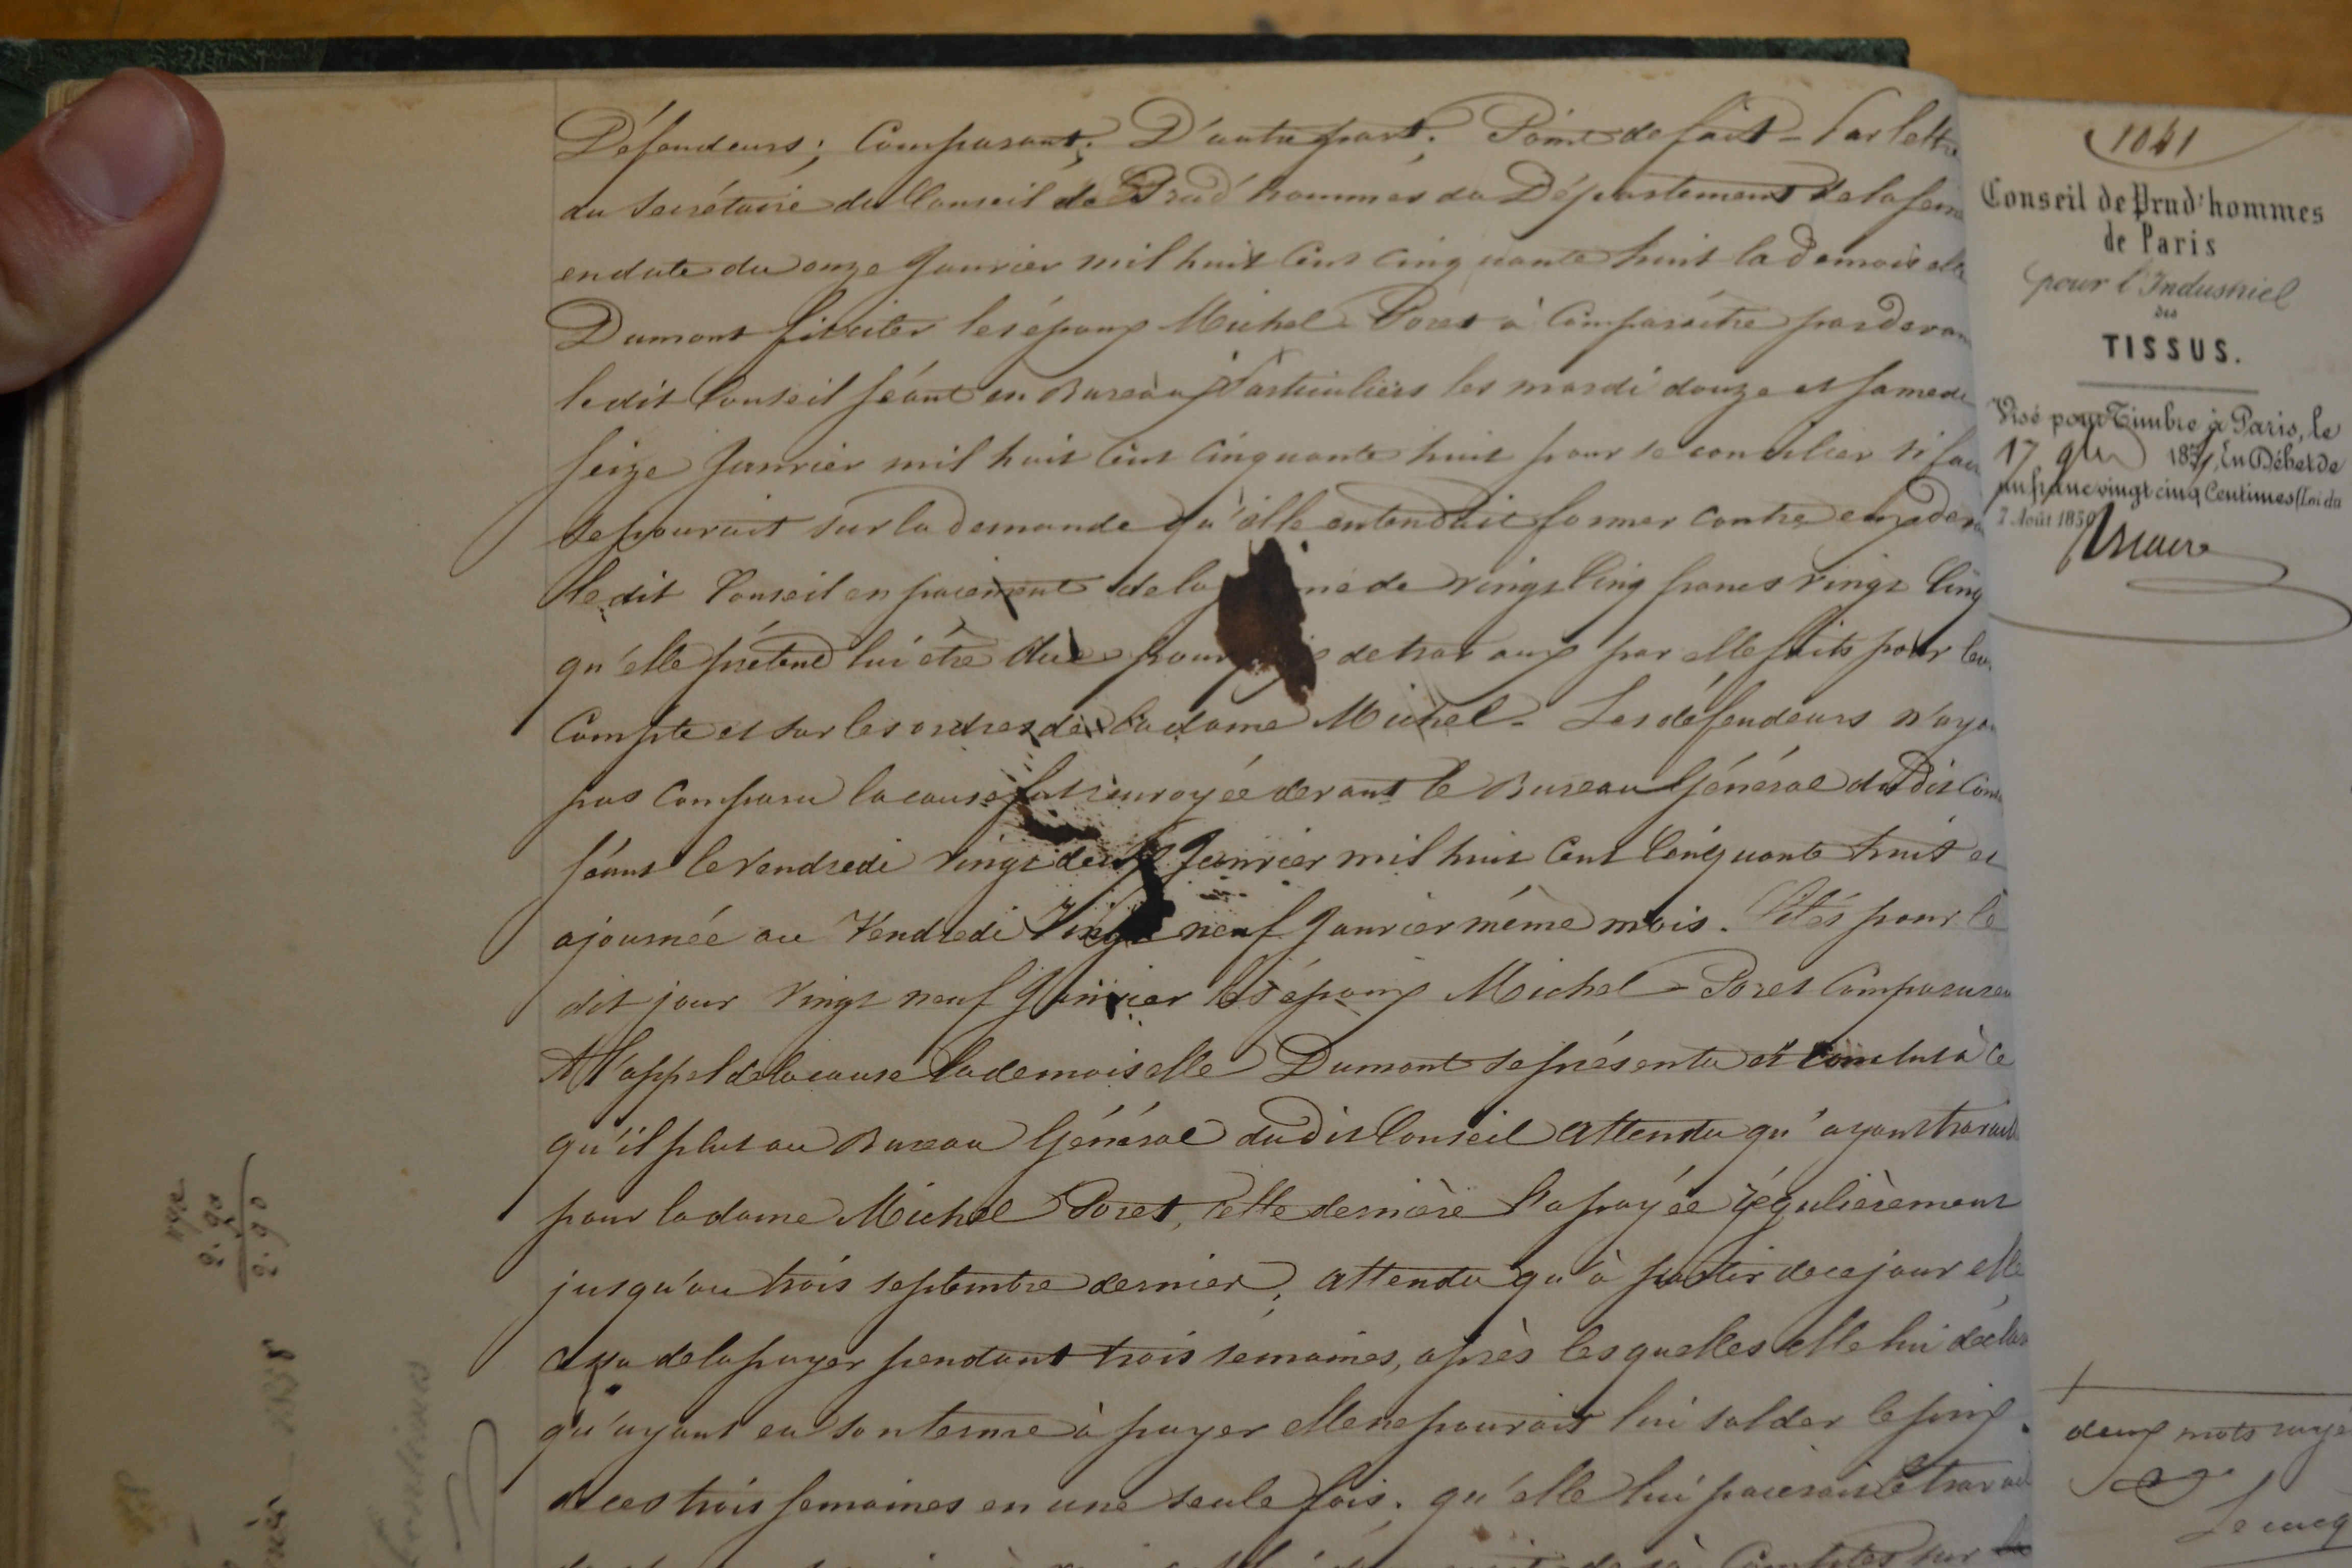 Défendeurs ; Comparant ; D'autre part ; Point de fait - Par lettre
du secrétaire du Conseil de Prud'hommes du Département de la Seine
en date du onze Janvier mil huit cent cinquante huit la demoiselle
Dumont fit citer les époux Michel Poret à comparaître par devant
le dit Conseil séant en Bureau Particuliers les mardi douze et samedi
seize Janvier mil huit cent cinquante huit pour se concilier si faire
se pouvait sur la demande qu'elle entendait former contre eux devant
le dit Conseil en paiement de la de vingt cinq francs vingt cinq
qu'elle prétend lui être due pour de travaux par elle faits pour leur
Compte et sur les ordres de la dame Michel - Les défendeurs n'ayant
pas comparu la cause fut renvoyée devant le Bureau Général du dit Conseil
séant le Vendredi vingt deux Janvier mil huit cent cinquante huit et
ajournée au Vendredi Vingt neuf Janvier même mois. Cités pour le
dit jour vingt neuf Janvier les époux Michel - Poret comparurent
A l'appel de la cause la demoiselle Dumont se présenta et conclut à ce
qu'il plut au Bureau Général du dit Conseil attendu qu'ayant travaillé
pour la dame Michel Poret, cette dernière l'a payée régulièrement
jusqu'au trois septembre dernier ; attendu qu'à partir de ce jour elle
cessa de la payer pendant trois semaines, après lesquelles elle lui déclara
qu'ayant eu son terme à payer elle ne pouvait lui solder le prix
de ces trois semaines en une seule fois ; qu'elle lui paierait le travail
1041
Conseil de Prud'hommes
de Paris
pour l'Industriel
des
TISSUS.
Visé pour Timbre à Paris, le
17 187 , En Débet de
un franc vingt cinq Centimes (Loi du
7 Août 1850
deux mots rayé
Lecucq